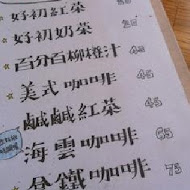 好初紅茶 25
好初奶茶 35
百分百柳橙汁 45
美式咖啡 45
鹹鹹紅茶 45
海雲咖啡 65
盒鐵咖啡 75